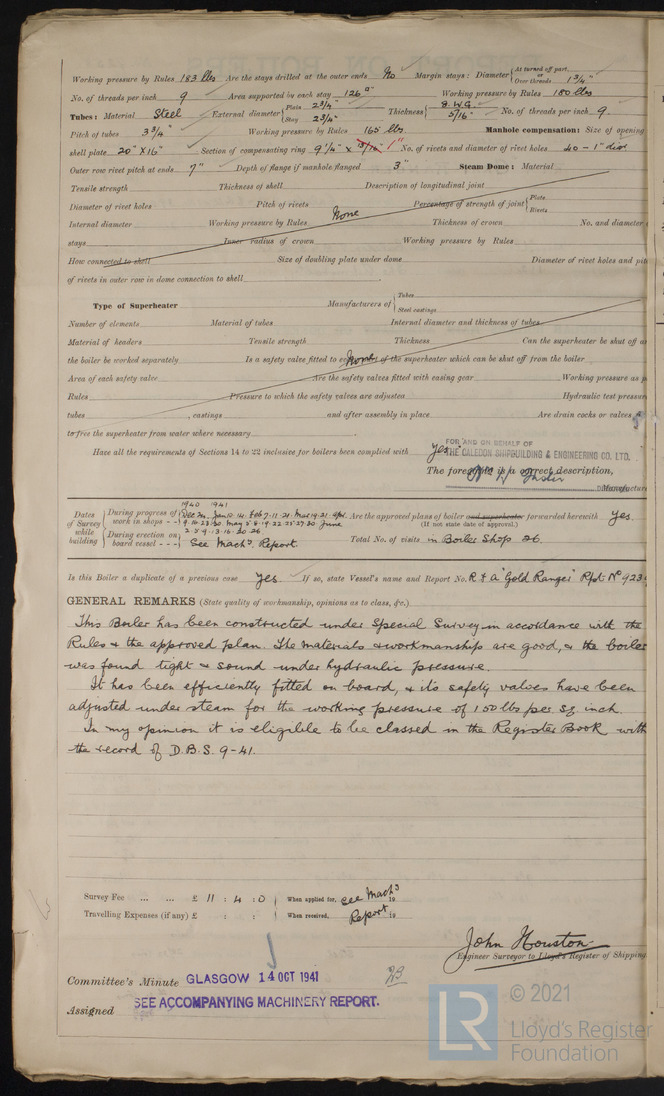 Working pressure by Rules 183 lbs Are the stays drilled at the outer ends No Margin stays: Diameter { At turned off part, or Over threads 1 3/4"
No. of threads per inch 9 Area supported by each stay 126 □" Working pressure by Rules 180 lbs
Tubes: Material Steel External diameter { Plain 2 3/4" Stay 2 3/4" Thickness { 8 W.G. 5/16" No. of threads per inch 9
Pitch of tubes 3 3/4" Working pressure by Rules 165 lbs. Manhole compensation: Size of opening
shell plate 20" X 16" Section of compensating ring 9 1/4" x 1" No. of rivets and diameter of rivet holes 40 - 1" dia
Outer row rivet pitch at ends 7" Depth of flange if manhole flanged 3" Steam Dome: Material
Tensile strength Thickness of shell Description of longitudinal joint
Diameter of rivet holes Pitch of rivets Percentage of strength of joint { Plate Rivets
None
Internal diameter Working pressure by Rules Thickness of crown No. and diameter
stays Inner radius of crown Working pressure by Rules
How connected to shell Size of doubling plate under dome Diameter of rivet holes and pit
of rivets in outer row in dome connection to shell
Type of Superheater Manufacturers of { Tubes Steel castings
Number of elements Material of tubes Internal diameter and thickness of tubes
Material of headers Tensile strength Thickness Can the superheater be shut off a
the boiler be worked separately Is a safety valve fitted to of the superheater which can be shut off from the boiler
None
Area of each safety valve Are the safety valves fitted with easing gear Working pressure as p
Rules Pressure to which the safety valves are adjusted Hydraulic test pressure
tubes , castings and after assembly in place Are drain cocks or valves
to free the superheater from water where necessary
Have all the requirements of Sections 14 to 22 inclusive for boilers been complied with Yes
FOR AND ON BEHALF OF
THE CALEDON SHIPBUILDING & ENGINEERING CO. LTD.
The foregoing is a correct description,
Manufactur
Dates of Survey while building
1940 1941
During progress of work in shops - - { Dec 24. Jan 10. 14. Feb 7. 11. 21. Mar 19. 21. Apl. 9. 16. 23. 30. May 5. 8. 19. 22. 25. 27. 30 June 2. 5. 9. 13. 16. 20. 26
During erection on board vessel - - - } See Machy. Report.
Are the approved plans of boiler and superheater forwarded herewith Yes.
(If not state date of approval.)
Total No. of visits in Boiler Shop 26.
Is this Boiler a duplicate of a previous case Yes. If so, state Vessel's name and Report No. R.F.A "Gold Ranger" Rpt No 923
GENERAL REMARKS (State quality of workmanship, opinions as to class, &c.)
This Boiler has been constructed under Special Survey in accordance with the
Rules & the approved plan. The materials & workmanship are good, & the boiler
was found tight & sound under hydraulic pressure.
It has been efficiently fitted on board, & its safety valves have been
adjusted under steam for the working pressure of 150 lbs per sq inch.
In my opinion it is eligible to be classed in the Register Book with
the record of D.B.S. 9-41.
Survey Fee ... ... £ 11 : 4 : 0 When applied for, See Machy 19
Travelling Expenses (if any) £ : : When received, Report 19
John Houston
Engineer Surveyor to Lloyd's Register of Shipping
Committee's Minute GLASGOW 14 OCT 1941
Assigned SEE ACCOMPANYING MACHINERY REPORT.
LR © 2021
Lloyd's Register
Foundation